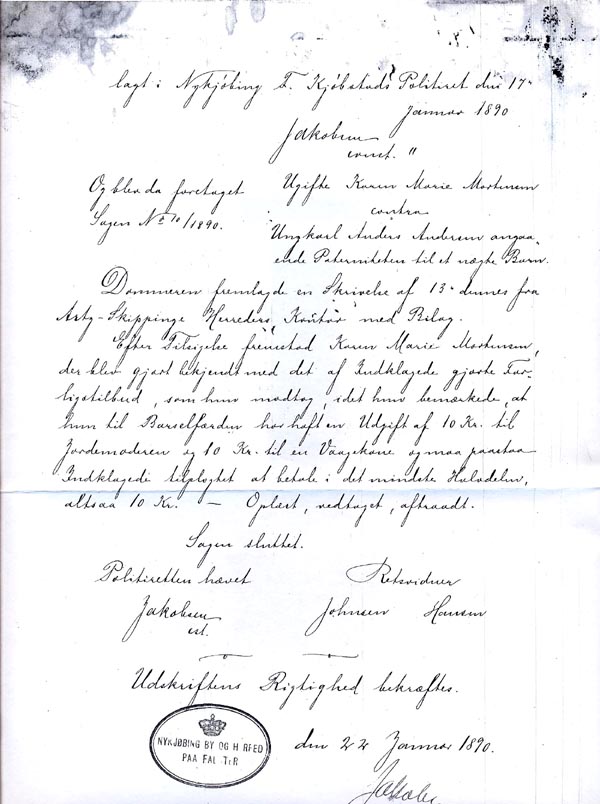 lagt i Nykjøbing F. Kjøbstads Politiret den 17
Januar 1890
Jakobsen
const. "
Og blev da foretaget
Sagen No 10/1890.
Ugifte Karen Marie Mortensen
contra
Ungkarl Anders Andersen angaa-
ende Paterniteten til et uægte Barn.
Dommeren fremlagde en Skrivelse af 13 dennes fra
Arts-Skippinge Herreders Kontor med Bilag.
Efter Tilsigelse fremstod Karen Marie Mortensen,
der blev gjort bekjendt med det af Indklagede gjorte For-
ligstilbud, som hun modtog, idet hun bemærkede, at
hun til Barselfærden har haft en Udgift af 10 Kr. til
Jordemoderen og 10 Kr. til en Vaagekone og maa paastaa
Indklagede tilpligtet at betale i det mindste Halvdelen,
altsaa 10 Kr. — Oplæst, vedtaget, aftraadt.
Sagen sluttet.
Politiretten hævet
Jakobsen
cst.
Retsvidner
Johnsen Hansen
Udskriftens Rigtighed bekræftes.
NYKJØBING BY OG HERRED
PAA FALSTER
den 22 Januar 1890.